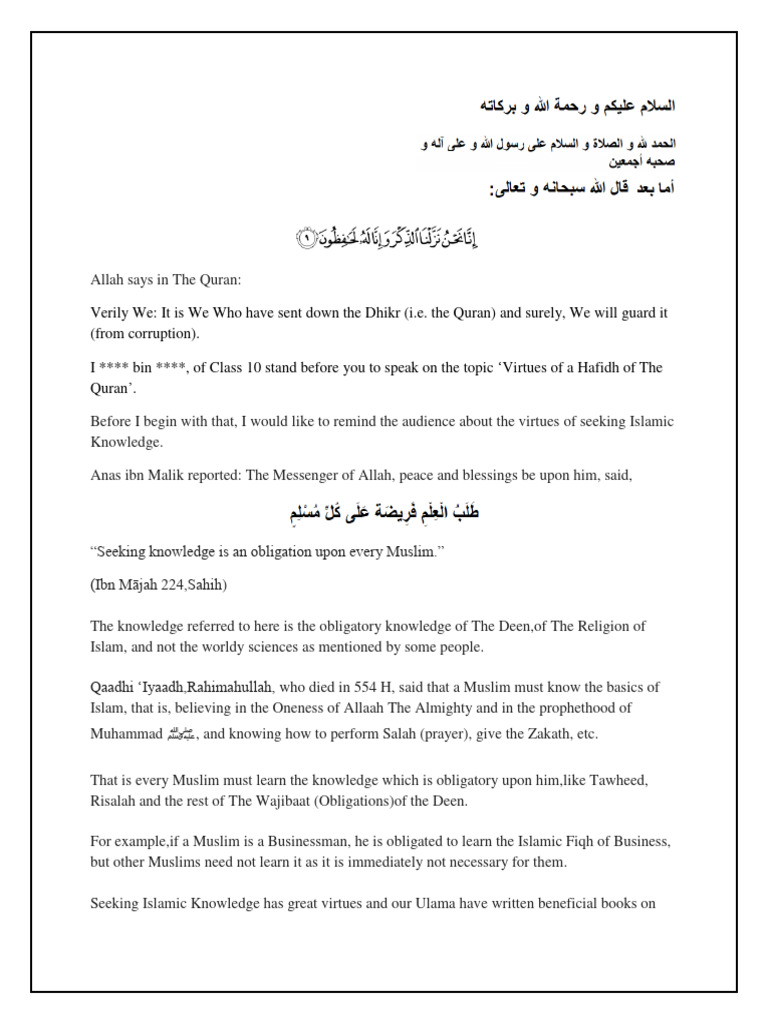 السلام عليكم و رحمة الله و بركاته
الحمد لله و الصلاة و السلام على رسول الله و على آله و
صحبه أجمعين
أما بعد قال الله سبحانه و تعالى:
إِنَّا نَحْنُ نَزَّلْنَا الذِّكْرَ وَإِنَّا لَهُ لَحَافِظُونَ ﴿٩﴾
Allah says in The Quran:
Verily We: It is We Who have sent down the Dhikr (i.e. the Quran) and surely, We will guard it
(from corruption).
I **** bin ****, of Class 10 stand before you to speak on the topic ‘Virtues of a Hafidh of The
Quran’.
Before I begin with that, I would like to remind the audience about the virtues of seeking Islamic
Knowledge.
Anas ibn Malik reported: The Messenger of Allah, peace and blessings be upon him, said,
طَلَبُ الْعِلْمِ فَرِيضَة عَلَى كُلِّ مُسْلِمٍ
“Seeking knowledge is an obligation upon every Muslim.”
(Ibn Mājah 224,Sahih)
The knowledge referred to here is the obligatory knowledge of The Deen,of The Religion of
Islam, and not the worldy sciences as mentioned by some people.
Qaadhi ‘Iyaadh,Rahimahullah, who died in 554 H, said that a Muslim must know the basics of
Islam, that is, believing in the Oneness of Allaah The Almighty and in the prophethood of
Muhammad ﷺ, and knowing how to perform Salah (prayer), give the Zakath, etc.
That is every Muslim must learn the knowledge which is obligatory upon him,like Tawheed,
Risalah and the rest of The Wajibaat (Obligations)of the Deen.
For example,if a Muslim is a Businessman, he is obligated to learn the Islamic Fiqh of Business,
but other Muslims need not learn it as it is immediately not necessary for them.
Seeking Islamic Knowledge has great virtues and our Ulama have written beneficial books on